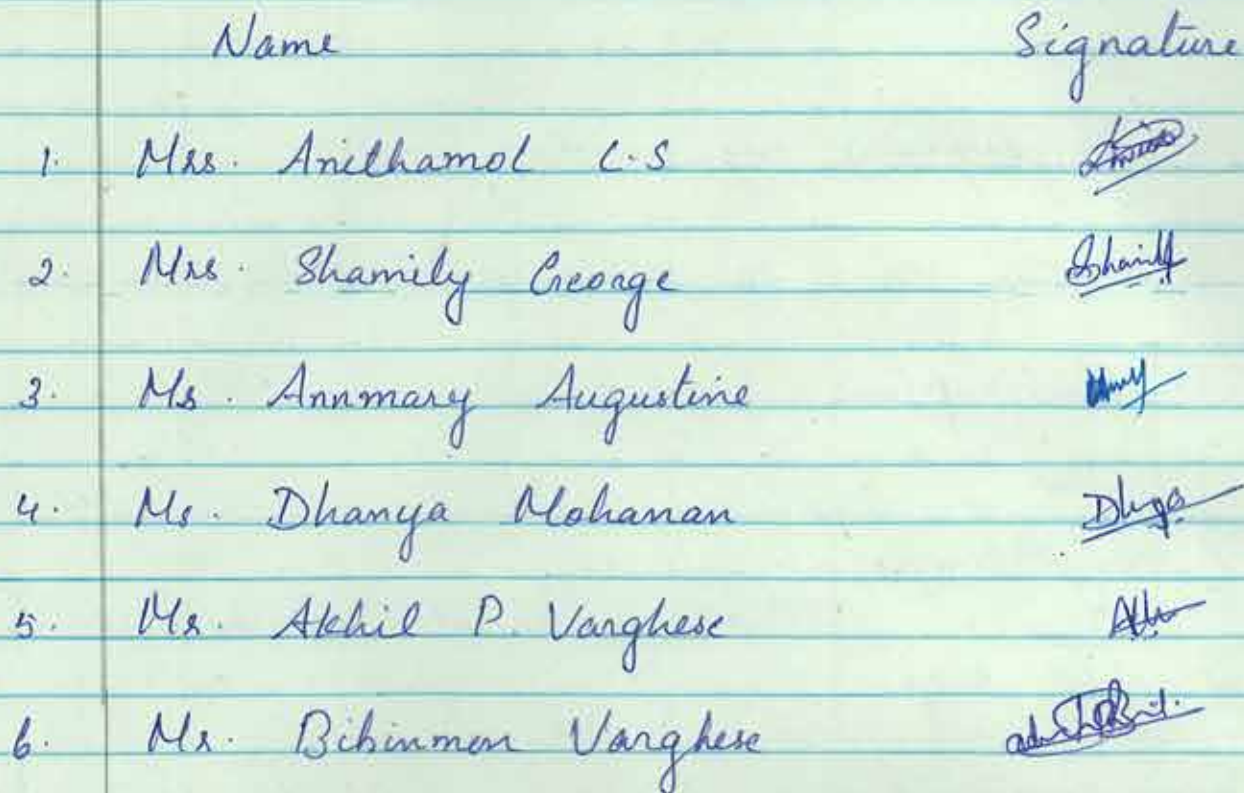 Name Signature
1. Mrs. Anithamol C.S
2. Mrs. Shamily George
3. Ms. Annmary Augustine
4. Ms. Dhanya Mohanan
5. Mr. Akhil P. Varghese
6. Mr. Bibinmon Varghese